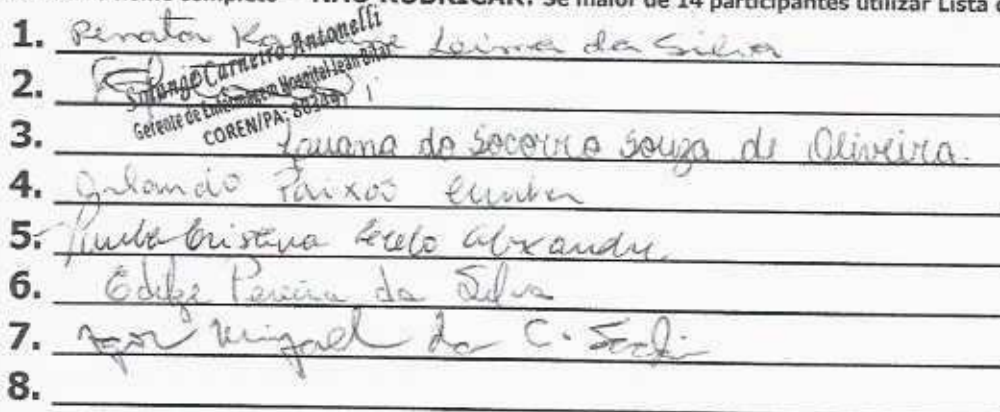 completo - NÃO RUBRICAR! Se maior de 14 participantes utilizar Lista
1. Renata Ka Leima da Silva
2.
Solange Carneiro Antonelli
Gerente de Enfermagem Hospital Jean Bitar
COREN/PA: 80349
3. Lauana do Socorro Souza de Oliveira.
4. Orlando Paixão Cunha
5. Cristina Alexandre
6. Edilze Pereira da Silva
7. Igor Miguel da C.
8.